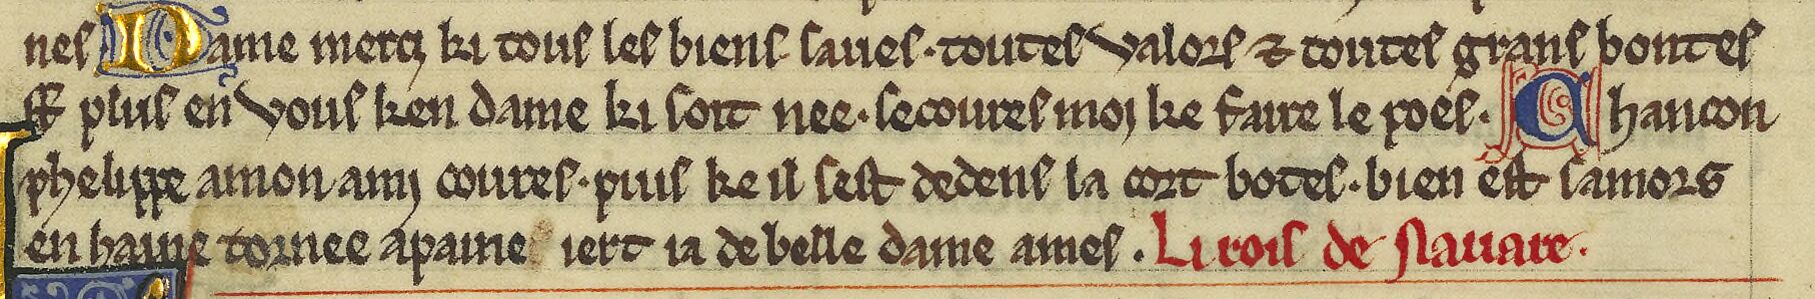 nes Dame mercj ki tous les biens saues·toutes valors ⁊ toutes grans bontes
st plus en vous ken dame ki soit nee·secoures moj ke faire le poes· Chancon
phelippe amon amj coures·puis ke il sest dedens la cort botes·bien est samors
en haine tornee apaine iert ia de belle dame ames· Li rois de Nauare·